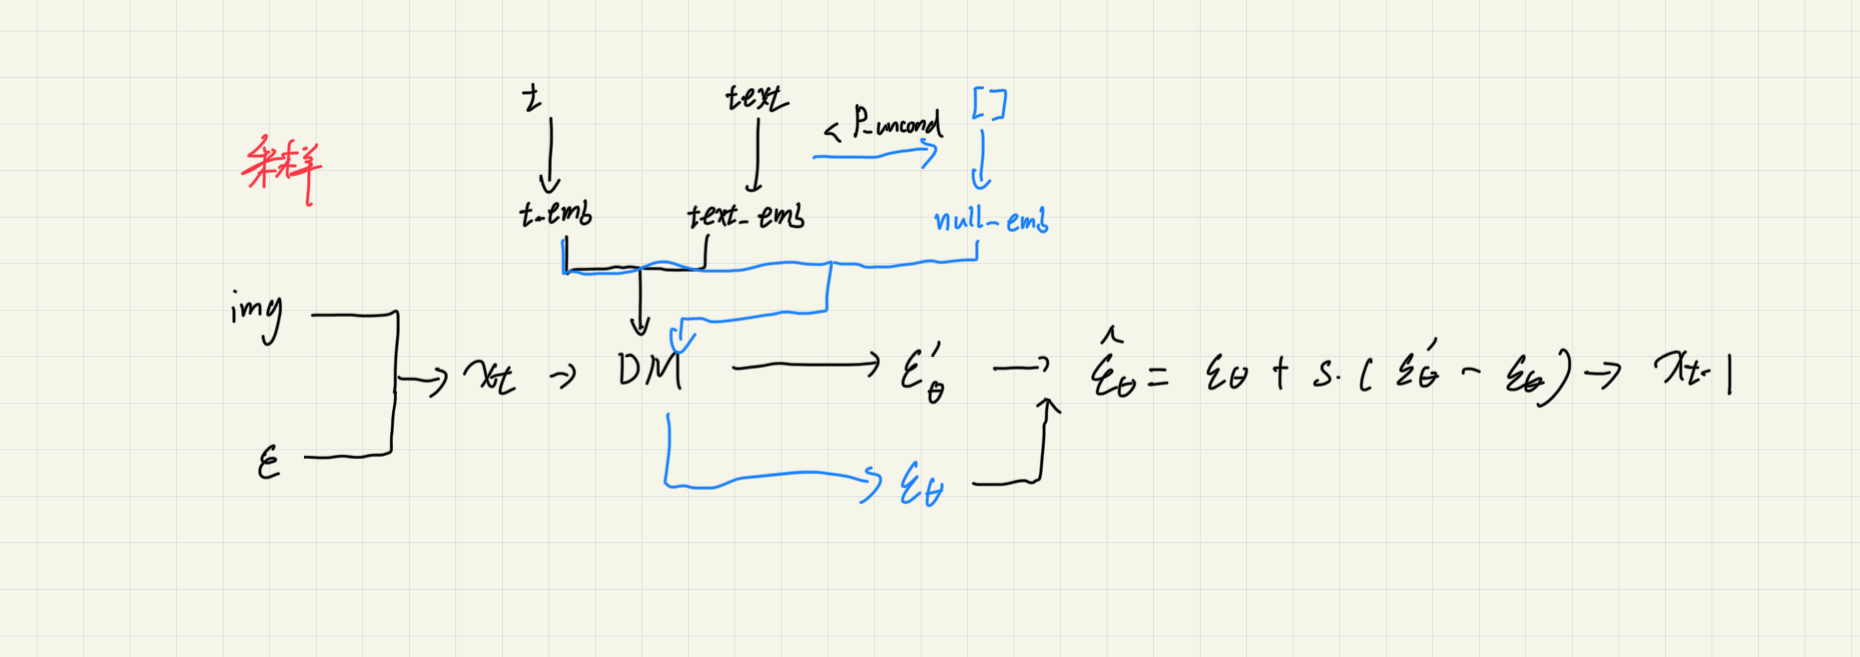 t text < P_uncond []
采样
t_emb text_emb null_emb
img
xt → DM → εθ′ → ε̂θ = εθ + s·(εθ′ - εθ) → xt-1
ε εθ